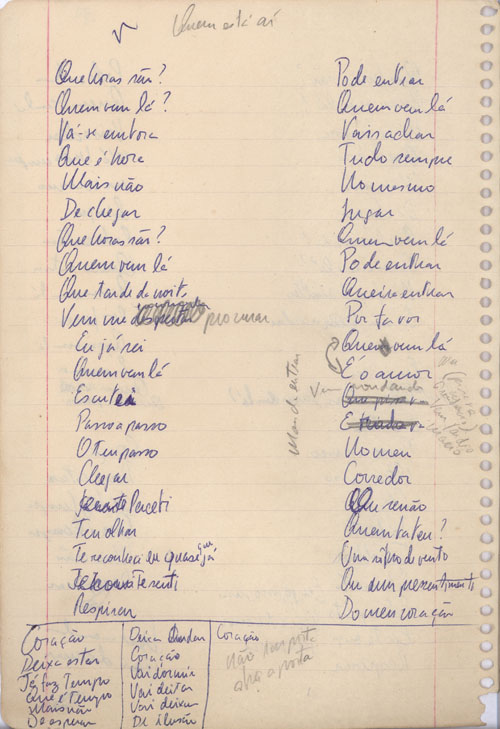 Quem está aí
Que horas são?
Quem vem lá?
Vá-se embora
Que é hora
Mais não
De chegar
Que horas são?
Quem vem lá
Que tarde da noite
Vem me procurar
Eu já sei
Quem vem lá
Escutei
Passo a passo
O teu passo
Chegar
Percebi
Teu olhar
Te reconheci eu quase que já
Te senti
Respirar
Pode entrar
Quem vem lá
Vais achar
Tudo sempre
No mesmo
Lugar
Quem vem lá
Pode entrar
Queira entrar
Por favor
Quem vem lá
É o amor
Vem rondando
No meu
Corredor
Ou senão
Quem bateu?
Um sopro de vento
Ou um pressentimento
Do meu coração
Mande entrar
Coração
Deixa estar
Já faz tempo
Que é tempo
Mais não
De esperar
Coração
Vai dormir
Vai deitar
Vai deixar
De ilusão
Coração
não importa
abra a porta